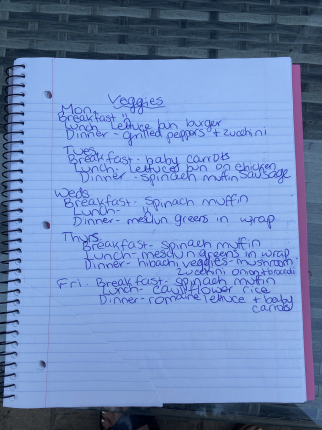 Veggies
Mon.
Breakfast "
Lunch- Lettuce bun burger
Dinner - grilled peppers + zucchini
Tues
Breakfast - baby carrots
Lunch- lettuce bun on chicken sausage
Dinner - spinach muffin
Weds
Breakfast- spinach muffin
Lunch- "
Dinner- mesclun greens in wrap
Thurs
Breakfast- spinach muffin
Lunch- mesclun greens in wrap
Dinner- hibachi veggies- mushroom
zucchini onion + broccoli
Fri. Breakfast- spinach muffin
Lunch- cauliflower rice
Dinner- romaine lettuce + baby
carrots